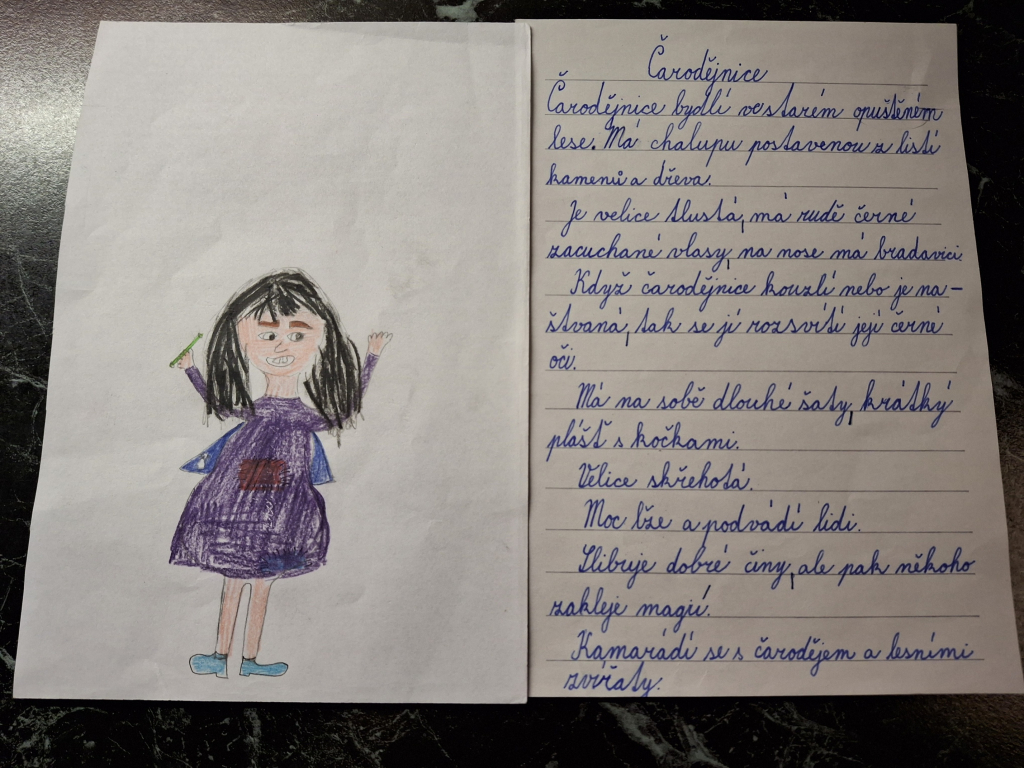 Čarodějnice
Čarodějnice bydlí ve starém opuštěném
lese. Má chalupu postavenou z listí
kamenů a dřeva.
Je velice tlustá, má rudě černé
zacuchané vlasy, na nose má bradavici.
Když čarodějnice kouzlí nebo je na-
štvaná, tak se jí rozsvítí její černé
oči.
Má na sobě dlouhé šaty, krátký
plášť s kočkami.
Velice skřehotá.
Moc lže a podvádí lidi.
Slibuje dobré činy, ale pak někoho
zakleje magií.
Kamarádí se s čarodějem a lesními
zvířaty.